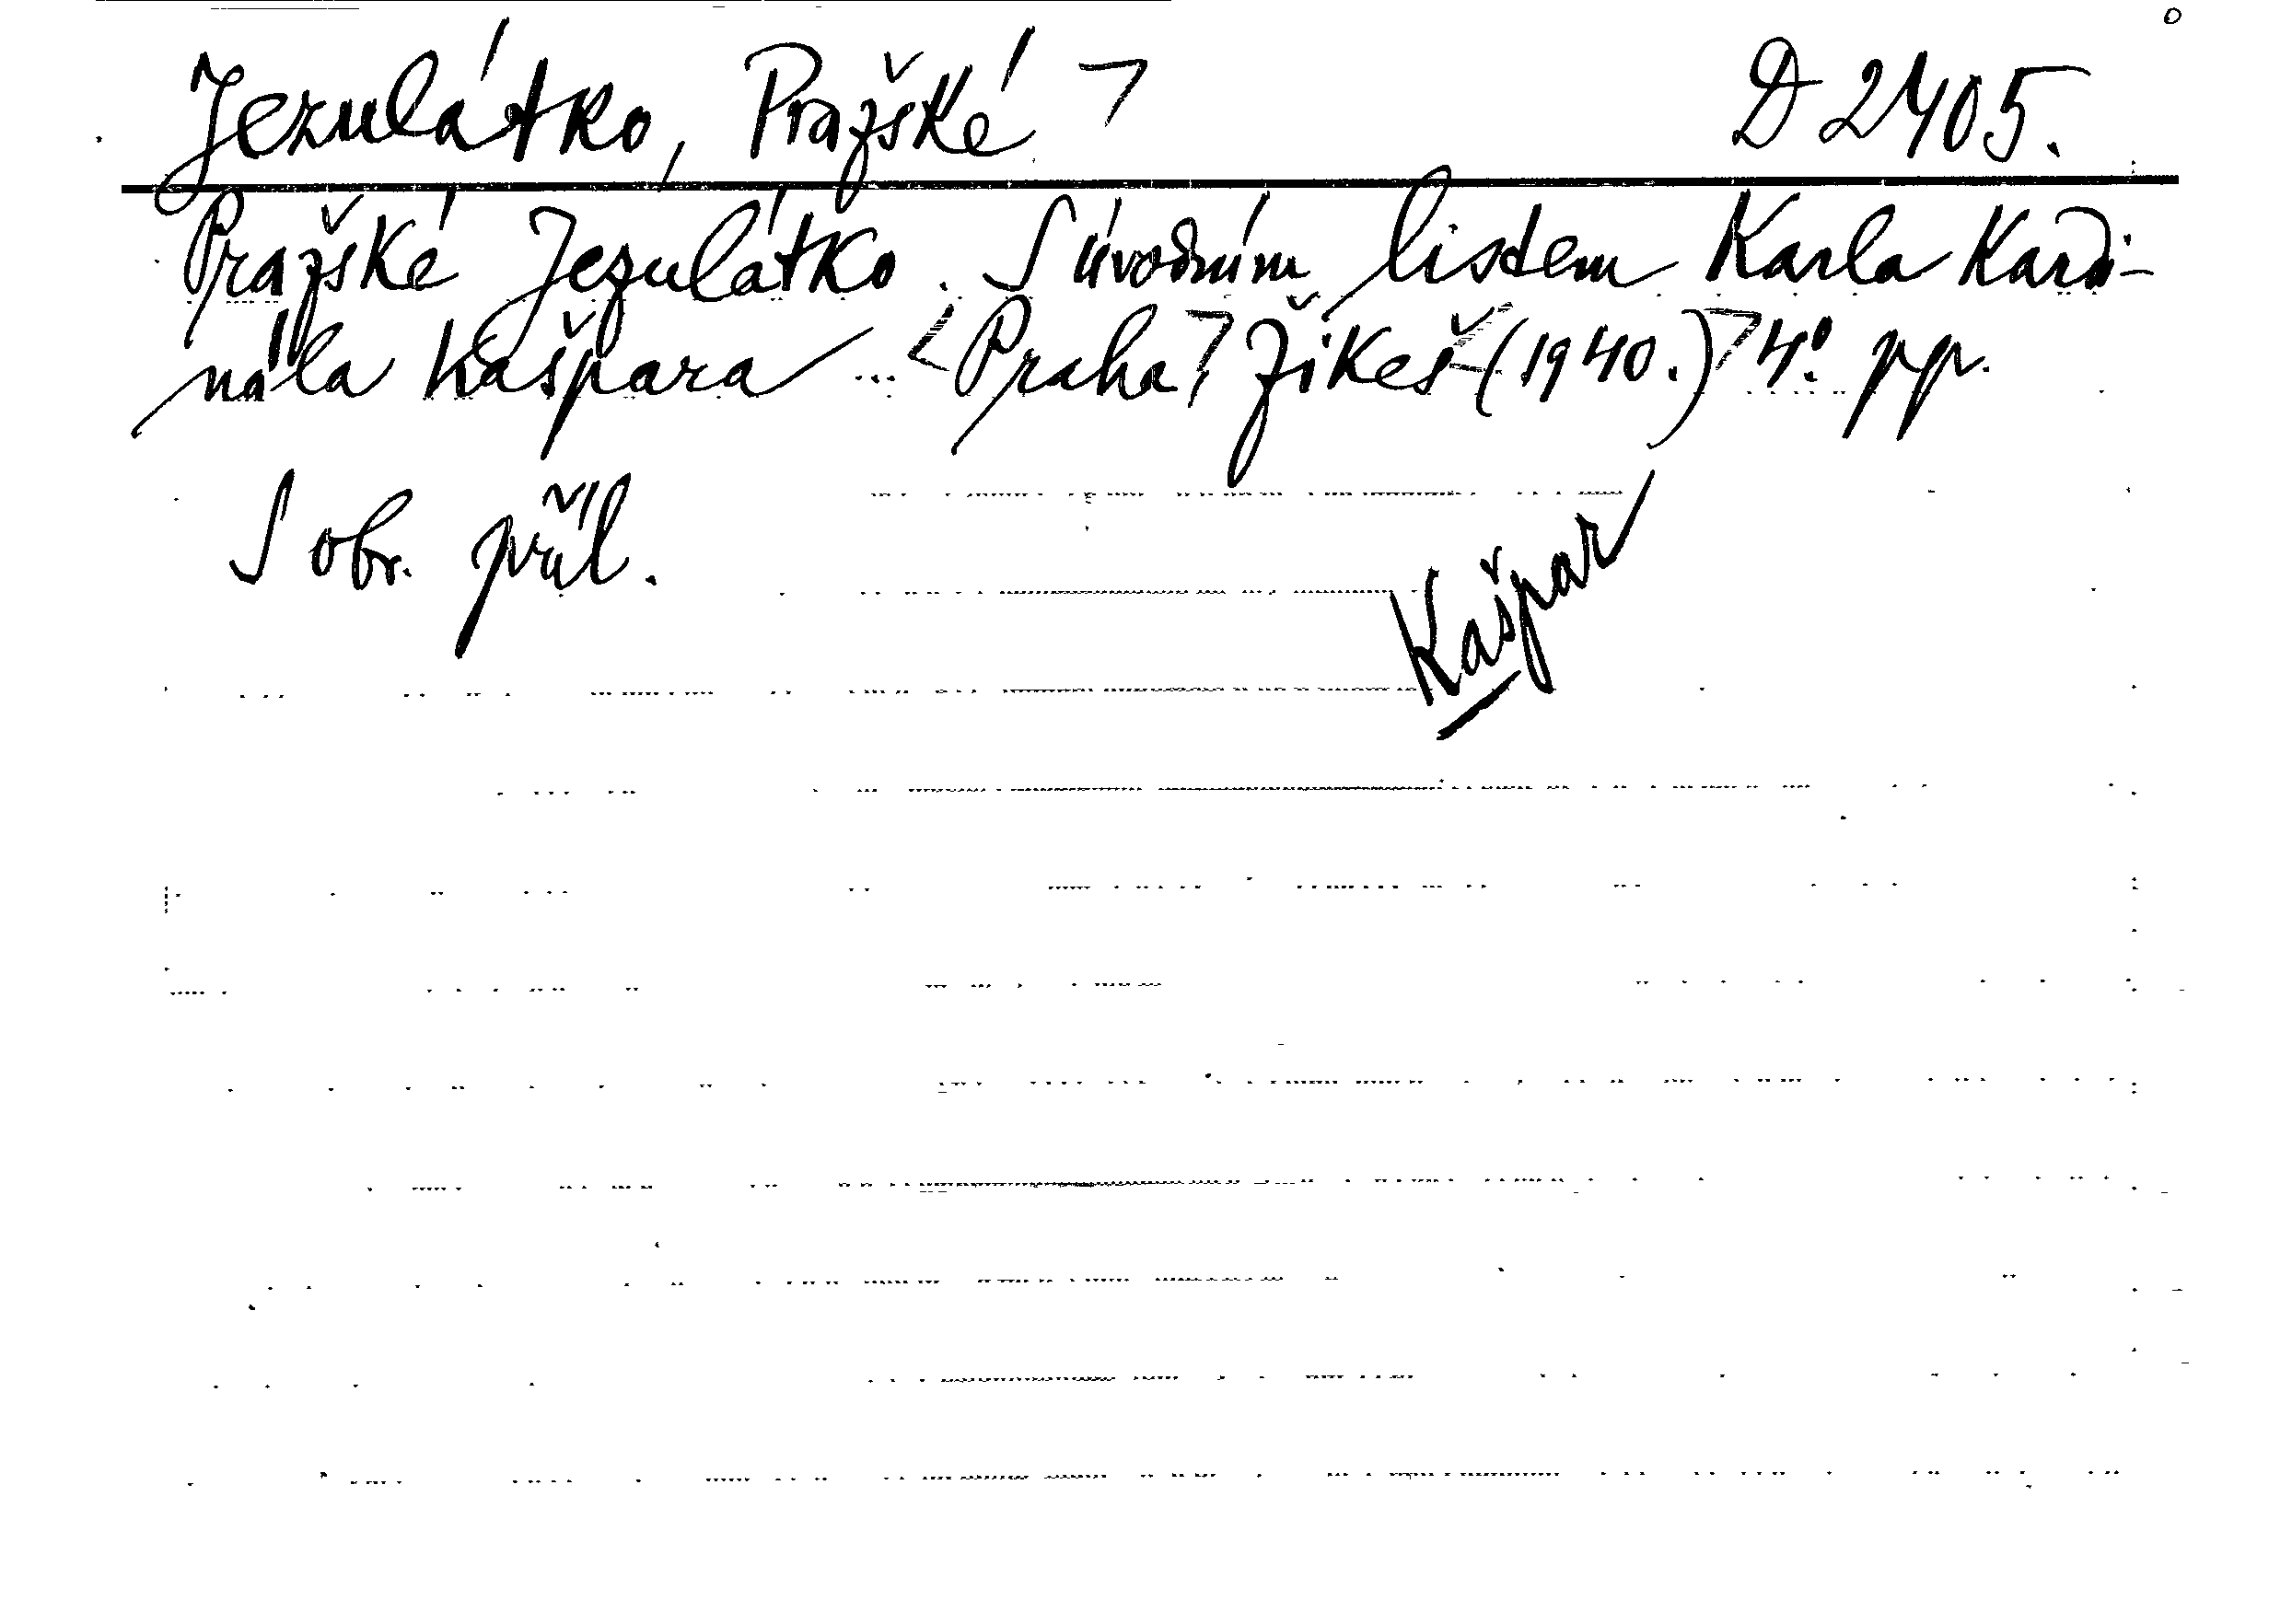 Jezulátko, Pražské 7 D 2405.
Pražské Jezulátko. S úvodním listem Karla Kardi-
nála Kašpara ... <Praha7, Žikeš (1940.)7 4°. pp.
S obr. příl.
Kašpar